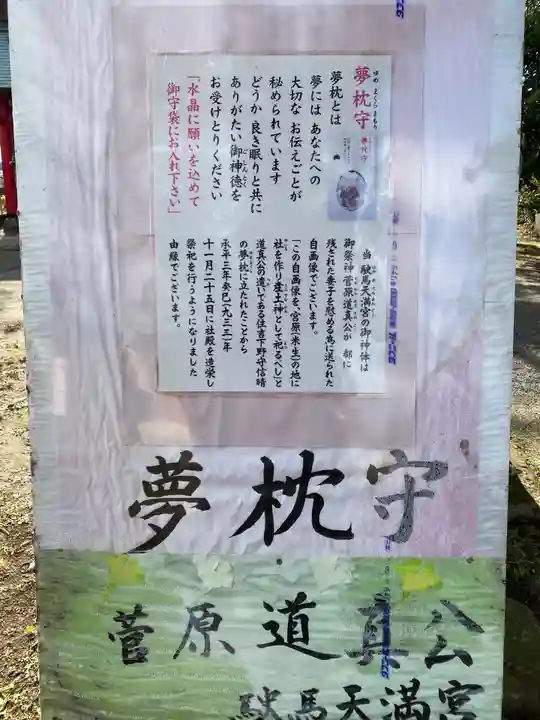 夢枕守
ゆめ まくら まもり
夢枕守
夢枕とは
夢には あなたへの
大切な お伝えごとが
秘められています
どうか 良き眠りと共に
ありがたい御神徳を
ごしんとく
お受けとりください
「水晶に願いを込めて
御守袋にお入れ下さい」
当 駛馬天満宮の御神体は
御祭神菅原道真公が 都に
残された妻子を慰める為に送られた
自画像でございます。
「この自画像を、宮原(米生)の地に
社を作り産土神として祀るべし」と
道真公の遺いである住吉下野守信晴
の夢枕に立たれたことから
承平三年癸巳(九三三)年
十一月二十五日に社殿を造栄し
祭祀を行うようになりました
由縁でございます。
夢枕守
菅原道真公
駛馬天満宮